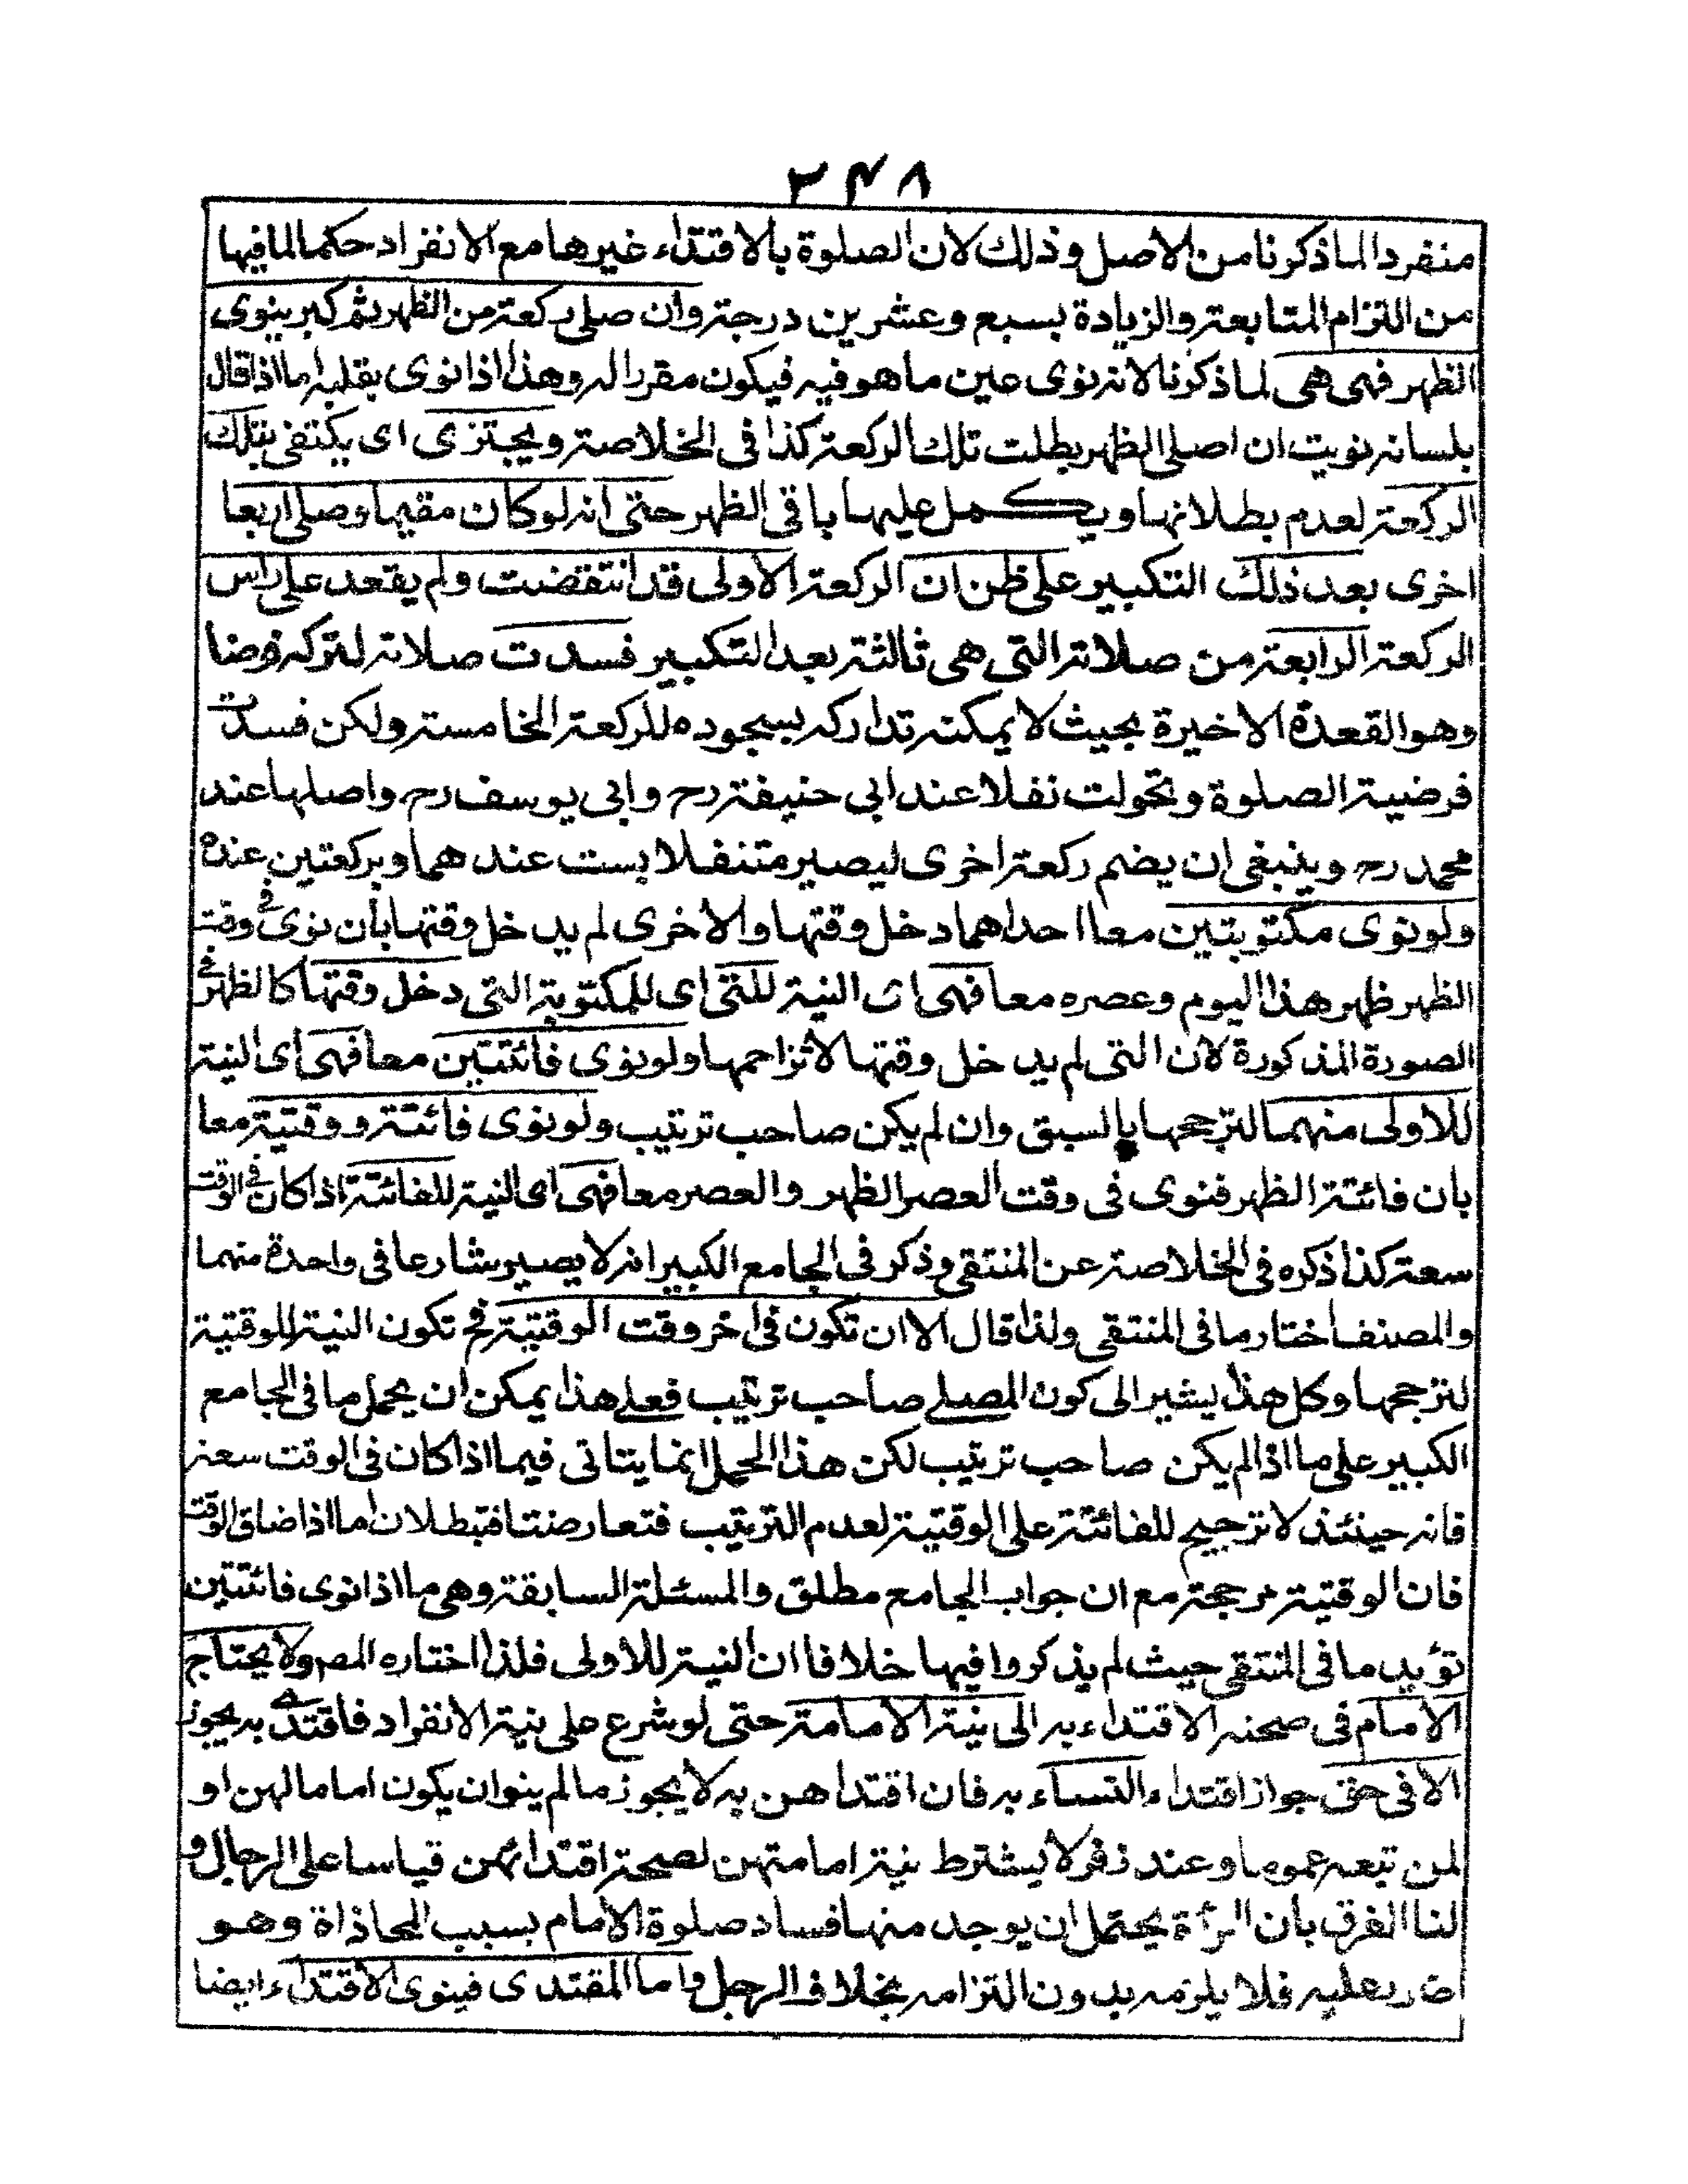 ۲۴۸
منفردا لما ذكرنا من الاصل وذلك لان الصلوة بالاقتداء غيرها مع الانفراد حكما لما فيها
من التزام المتابعة والزيادة بسبع وعشرين درجة وان صلى ركعة من الظهر ثم كبر ينوى
الظهر فهى هى لما ذكرنا لانه نوى عين ما هو فيه فيكون مقررا له وهذا اذا نوى بقلبه اما اذا قال
بلسانه نويت ان اصلى الظهر بطلت تلك الركعة كذا فى الخلاصة ويجتزى اى يكتفى بتلك
الركعة لعدم بطلانها ويكمل عليها باقى الظهر حتى انه لو كان مقيما وصلى اربعا
اخرى بعد ذلك التكبير على ظن ان الركعة الاولى قد انتقضت ولم يقعد على راس
الركعة الرابعة من صلاته التى هى ثالثة بعد التكبير فسدت صلاته لتركه فرضا
وهو القعدة الاخيرة بحيث لا يمكنه تداركه بسجوده للركعة الخامسة ولكن فسدت
فرضية الصلوة وتحولت نفلا عند ابى حنيفة رح وابى يوسف رح واصلها عند
محمد رح وينبغى ان يضم ركعة اخرى ليصير متنفلا بست عندهما وبركعتين عنده
ولو نوى مكتوبتين معا احداهما دخل وقتها والاخرى لم يدخل وقتها بأن نوى فى وقت
الظهر ظهر هذا اليوم وعصره معا فهى اى النية للتى اى للمكتوبة التى دخل وقتها كالظهر فى
الصورة المذكورة لان التى لم يدخل وقتها لا تزاحمها ولو نوى فائتتين معا فهى اى النية
للاولى منهما لترجحها بالسبق وان لم يكن صاحب ترتيب ولو نوى فائتة ووقتية معا
بان فائتة الظهر فنوى فى وقت العصر الظهر والعصر معا فهى اى النية للفائتة اذا كان فى الوقت
سعة كذا ذكره فى الخلاصة عن المنتقى وذكر فى الجامع الكبير انه لا يصير شارعا فى واحدة منهما
والمصنف اختار ما فى المنتقى ولذا قال الا ان تكون فى اخر وقت الوقتية فح تكون النية للوقتية
لترجحها وكل هذا يشير الى كون المصلے صاحب ترتيب فعلے هذا يمكن ان يحمل ما فى الجامع
الكبير على ما اذا لم يكن صاحب ترتيب لكن هذا الحمل انما يتاتى فيما اذا كان فى الوقت سعة
فانه حينئذ لا ترجيح للفائتة على الوقتية لعدم الترتيب فتعارضتا فتبطلان اما اذا ضاق الوقت
فان الوقتية مرجحة مع ان جواب الجامع مطلق والمسئلة السابقة وهى ما اذا نوى فائتتين
تؤيد ما فى المنتقى حيث لم يذكروا فيها خلافا ان النية للاولى فلذا اختاره المصر ولا يحتاج
الامام فى صحة الاقتداء به الى نية الامامة حتى لو شرع على نية الانفراد فاقتدے به يجوز
الا فى حق جواز اقتداء النساء به فان اقتداهن به لا يجوز ما لم ينو ان يكون اماما لهن او
لمن تبعه عموما وعند زفر لا يشترط نية امامتهن لصحة اقتدائهن قياسا على الرجال و
لنا الفرق بان المرأة يحتمل ان يوجد منها فساد صلوة الامام بسبب المحاذاة وهو
ضرر عليه فلا يلزمه بدون التزامه بخلاف الرجل واما المقتدى فينوى الاقتداء ايضا